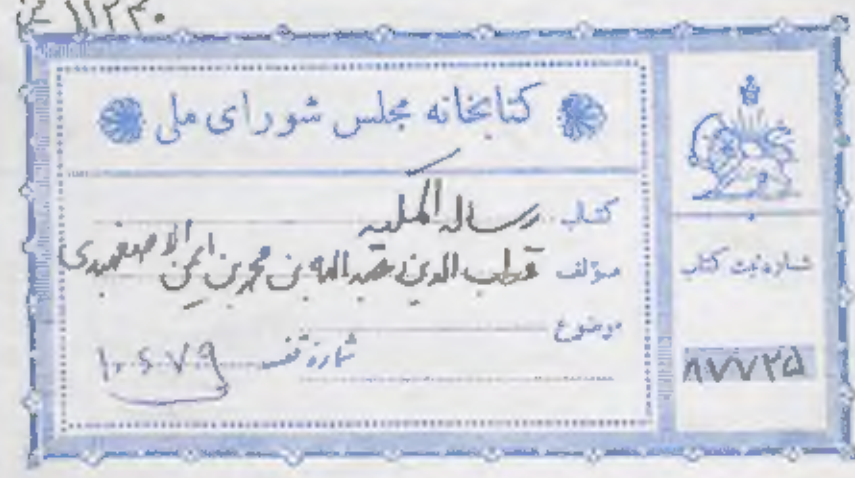 ۱۱۲۳۰
کتابخانه مجلس شورای ملی
کتاب رساله المکیه
مؤلف قطب الدین عبدالله بن محمد بن ایمن الاصفهبدی
موضوع
شماره قفسه ۱۰۶۷۹
شماره ثبت کتاب
۸۷۷۲۵